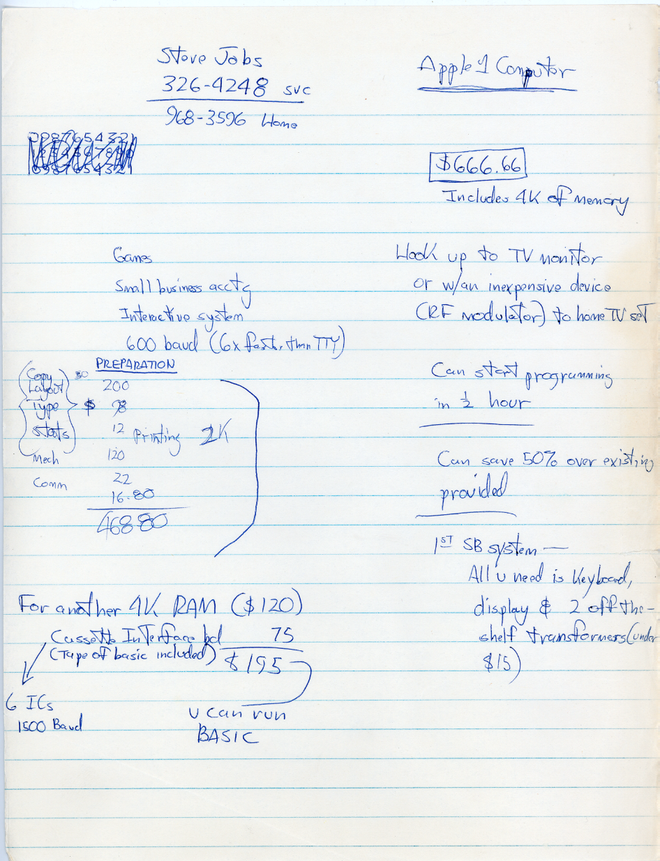 Steve Jobs
326-4248 svc
968-3596 Home
0987654321
0987654321
Apple 1 Computor
$666.66
Includes 4K of memory
Games
Small business acctg
Interactive system
600 baud (6x fast, than TTY)
Hook up to TV monitor
or w/an inexpensive device
(RF modulator) to home TV set
Can start programming
in ½ hour
Can save 50% over existing
provided
1ST SB system —
All u need is Keyboard,
display & 2 off-the-
shelf transformers (under
$15)
PREPARATION
Copy 30
Layout 200
Type $ 78
stats 12 Printing 2K
Mech 120
Comm 22
16.80
468.80
For another 4K RAM ($120)
Cassette Interface bd 75
(Tape of basic included) $195
6 ICs
1500 Baud
u can run
BASIC